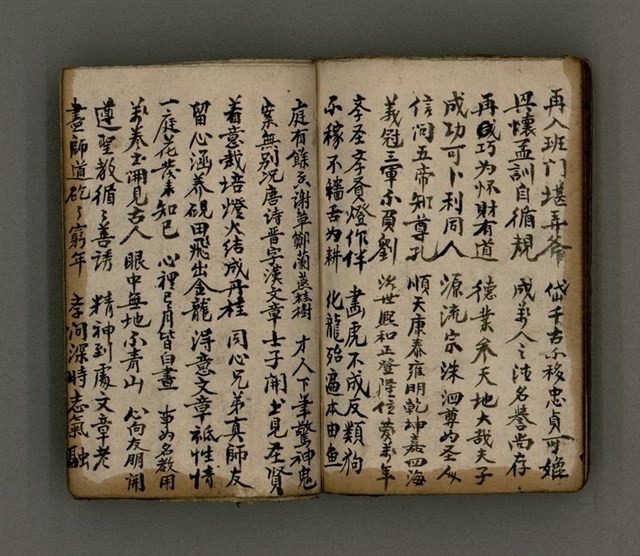 再入班門堪弄斧 岱千古不移忠貞可
與懷孟訓自循規 成萬人之
再 巧为怀財有道 德業参天地大哉夫子
成功可卜利同人 源流宗洙泗尊为圣
信问五帝知尊孔 順天康泰雍明乾坤嘉四海
義冠三軍不負劉 世熙和正登陞信 萬年
孝圣孝賢燈作伴 畫虎不成反類狗
不稼不穡舌为耕 化龍 本由魚
庭有餘 谢草鄭蘭燕桂樹 才人下筆驚神鬼
案無別况唐诗晋字漢文章 士子開 見圣賢
着意栽培燈火结成丹桂 同心兄弟真師友
留心涵养硯田飛出金龍 得意文章 性情
一庭花發来知己 心裡 月皆自畫 事如名教用
萬卷 開見古人 眼中無地不青山 心向友朋開
遵聖教循々善诱 精神到處文章老
畫師道矻々窮年 学问深時志氣融